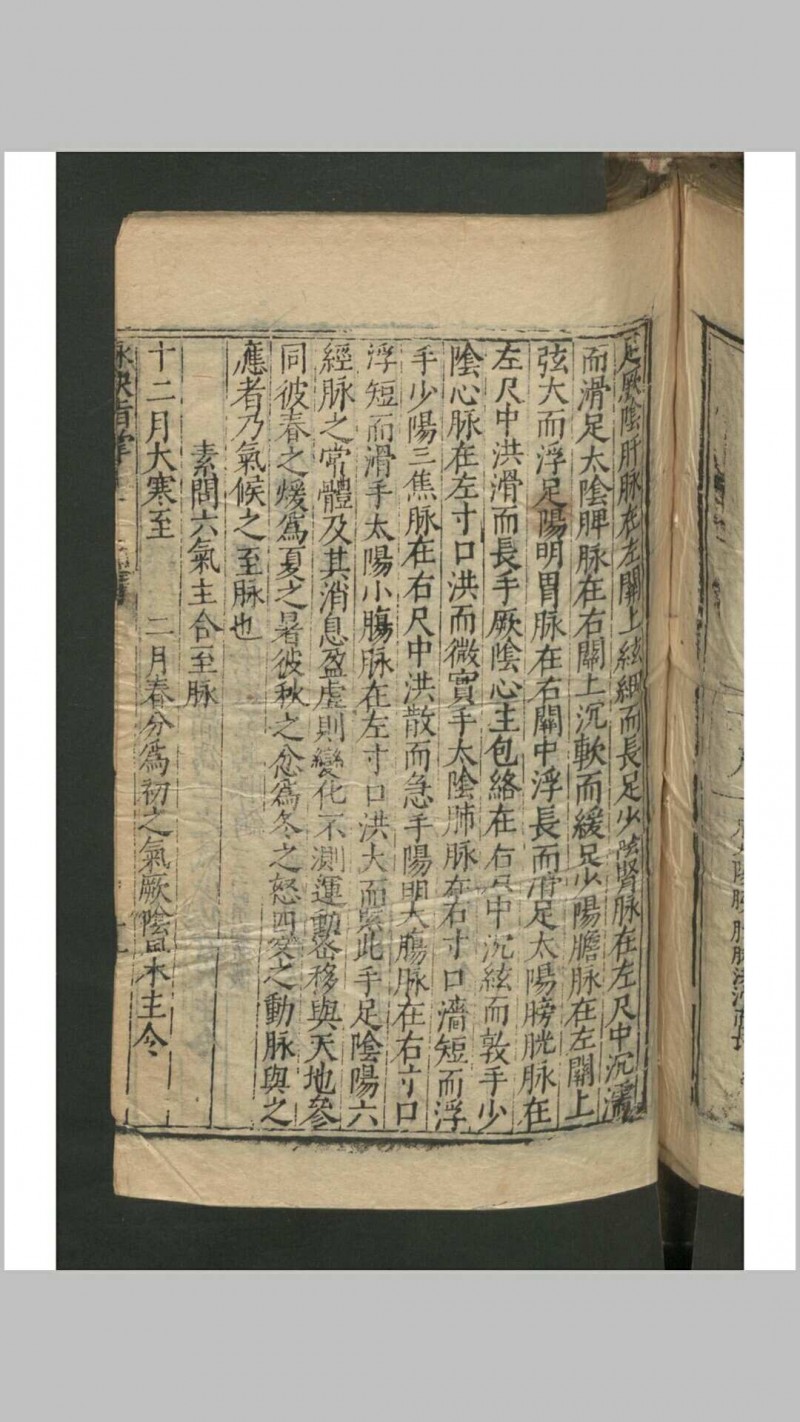 足厥陰肝脉在左關上絃細而長足少陰腎脉在左尺中沉濡
而滑足太陰脾脉在右關上沉軟而緩足少陽膽脉在左關上
弦大而浮足陽明胃脉在右關中浮長而滑足太陽膀胱脉在
左尺中洪滑而長手厥陰心主包絡在右尺中沉絃而敦手少
陰心脉在左寸口洪而微實手太陰肺脉在右寸口濇短而浮
手少陽三焦脉在右尺中洪散而急手陽明大膓脉在右寸口
浮短而滑手太陽小膓脉在左寸口洪大而緊此手足陰陽六
經脉之常體及其消息盈虛則變化不測運動密移與天地參
同彼春之煖爲夏之暑彼秋之忿爲冬之怒四変之動脉與之
應者乃氣候之至脉也
素問六氣主合至脉
十二月大寒至 二月春分爲初之氣厥陰風木主令